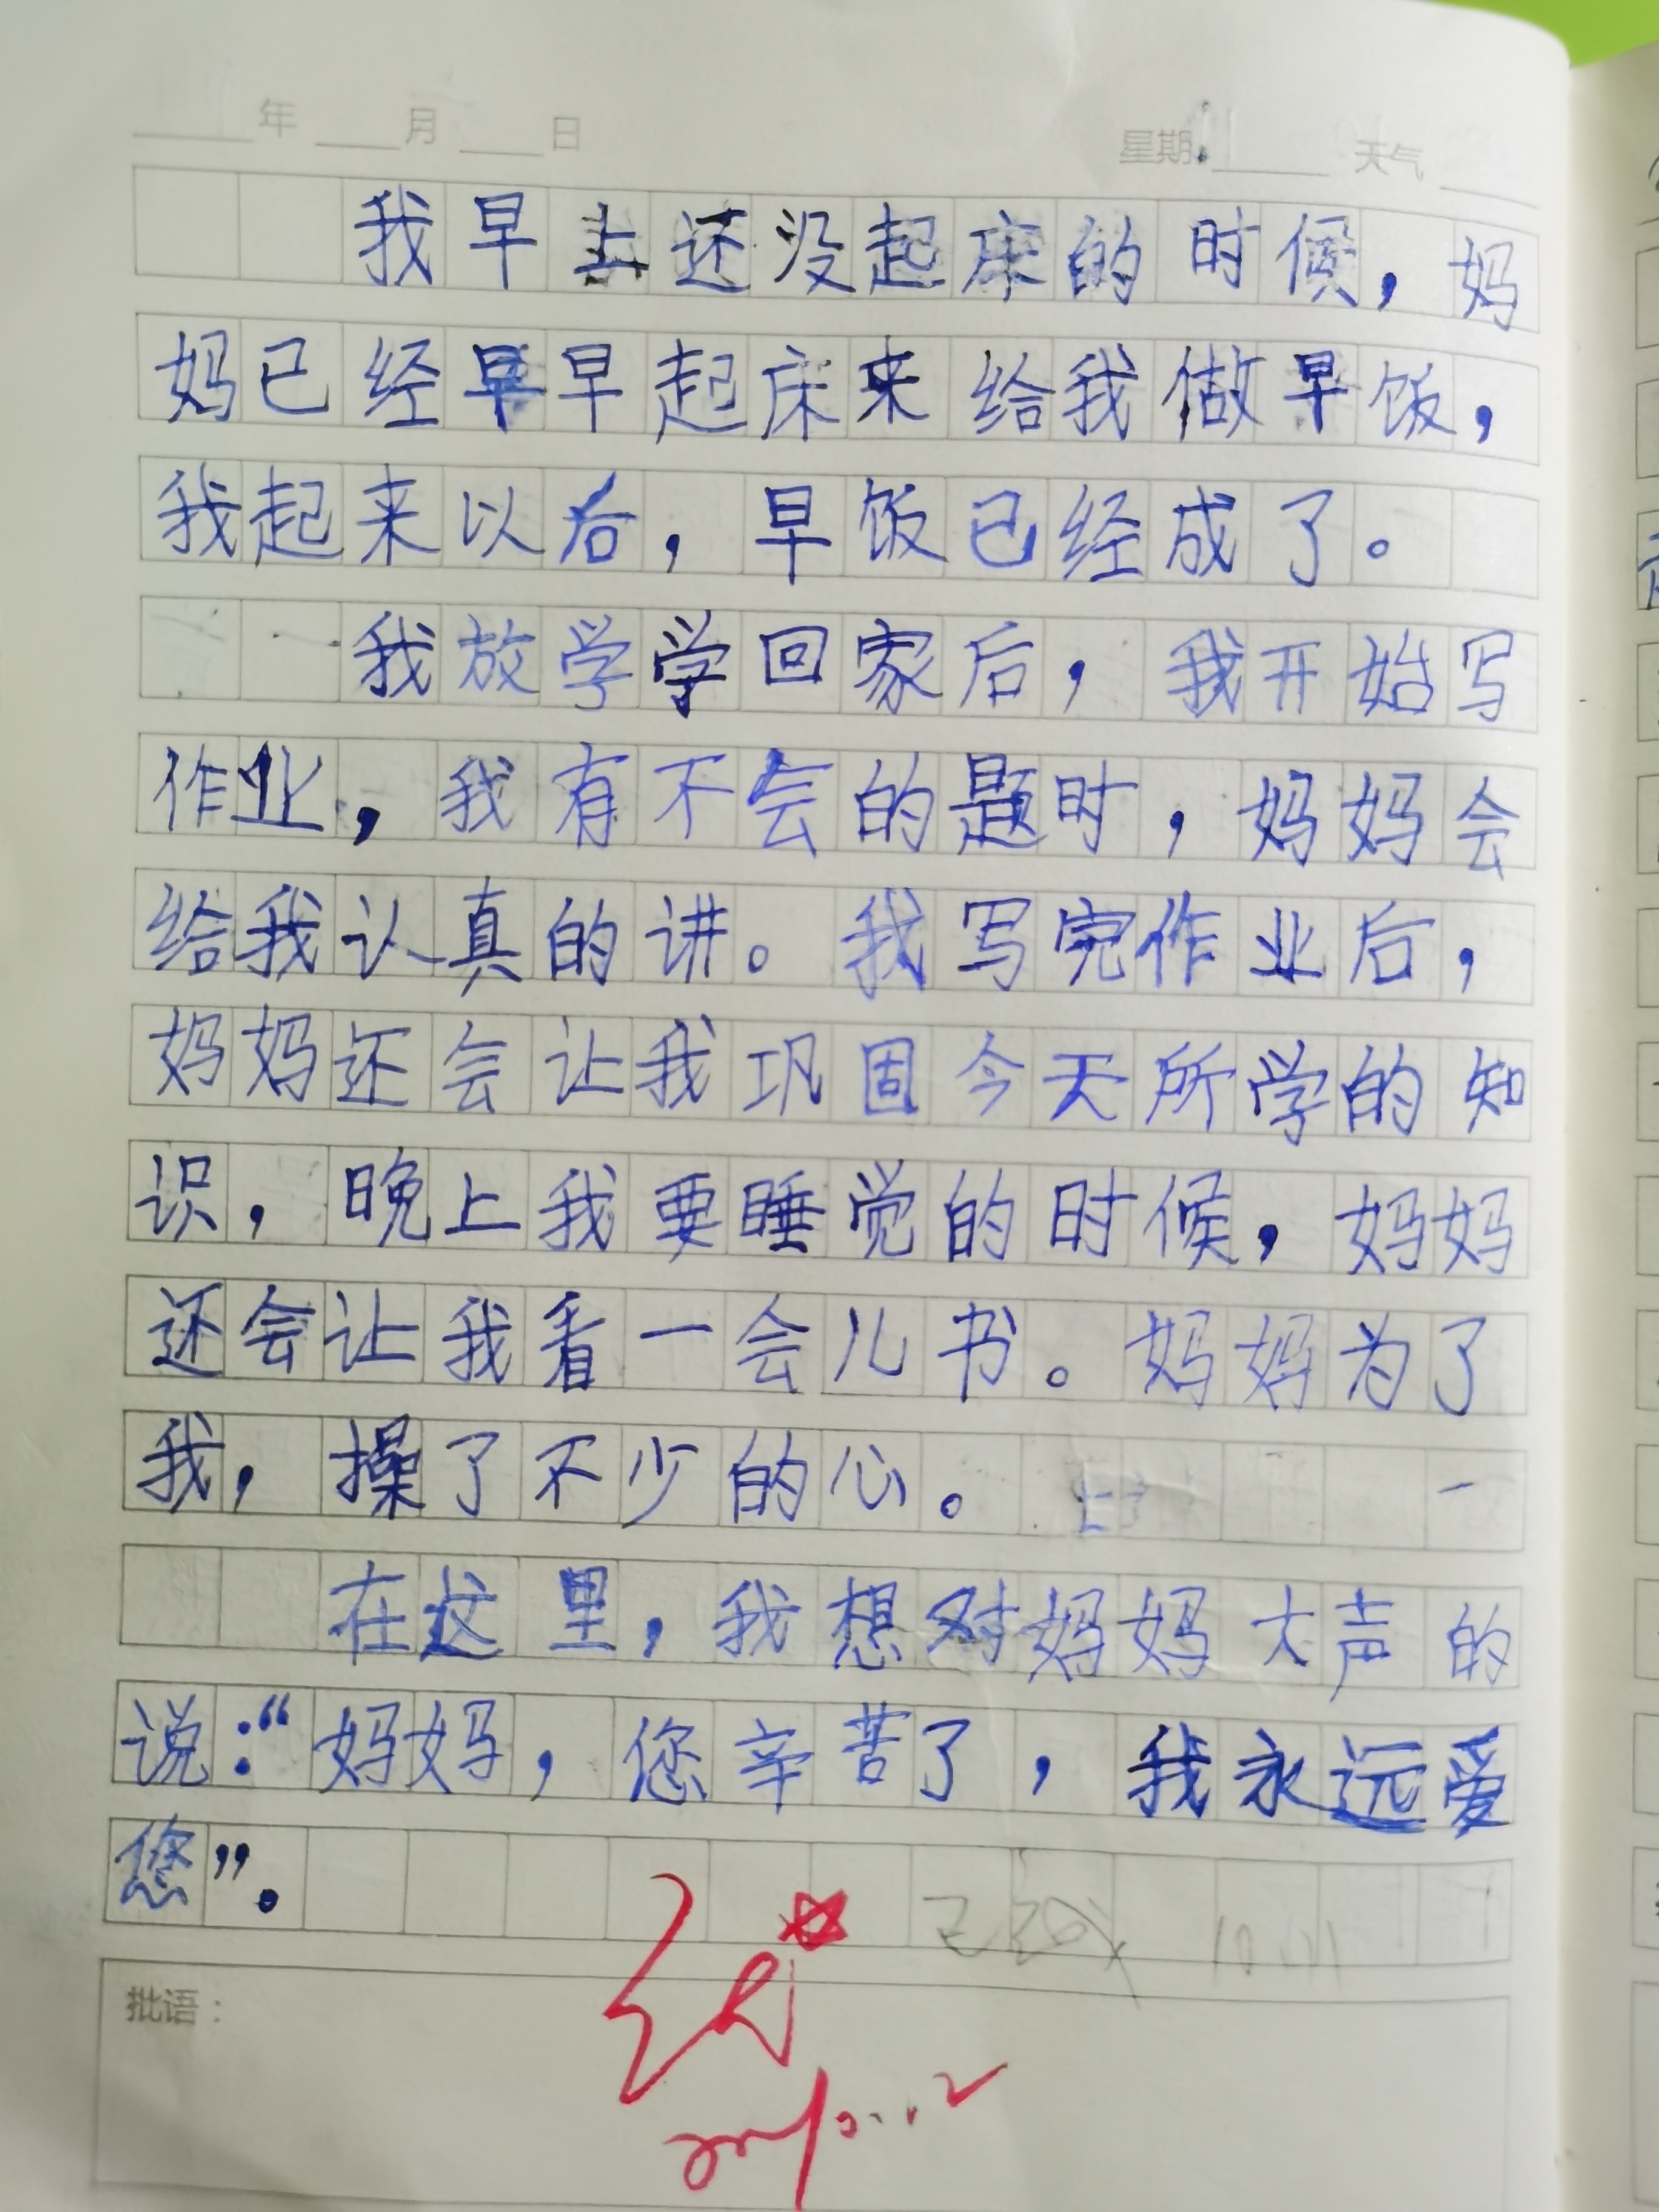 年 月 日 星期 天气
我早上还没起床的时候，妈
妈已经早早起床来给我做早饭，
我起来以后，早饭已经成了。
我放学学回家后，我开始写
作业，我有不会的题时，妈妈会
给我认真的讲。我写完作业后，
妈妈还会让我巩固今天所学的知
识，晚上我要睡觉的时候，妈妈
还会让我看一会儿书。妈妈为了
我，操了不少的心。
在这里，我想对妈妈大声的
说：“妈妈，您辛苦了，我永远爱
您”。
批语：